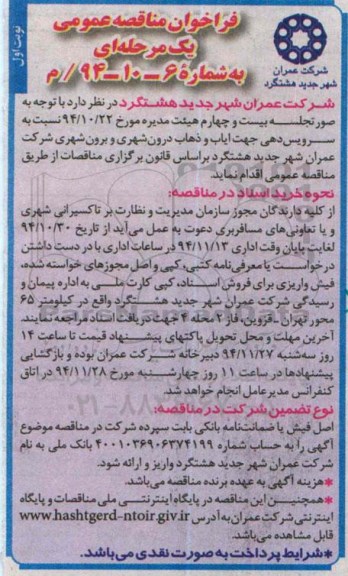 نوبت اول
فراخوان مناقصه عمومی
یک مرحله‌ای
به شماره ۶-۱۰-۹۴/م
شرکت عمران
شهر جدید هشتگرد
شرکت عمران شهر جدید هشتگرد در نظر دارد با توجه به
صورتجلسه بیست و چهارم هیئت مدیره مورخ ۹۴/۱۰/۲۲ نسبت به
سرویس‌دهی جهت ایاب و ذهاب درون‌شهری و برون‌شهری شرکت
عمران شهر جدید هشتگرد براساس قانون برگزاری مناقصات از طریق
مناقصه عمومی اقدام نماید.
نحوه خرید اسناد در مناقصه:
از کلیه دارندگان مجوز سازمان مدیریت و نظارت بر تاکسیرانی شهری
و یا تعاونی‌های مسافربری دعوت به عمل می‌آید از تاریخ ۹۴/۱۰/۳۰
لغایت پایان وقت اداری ۹۴/۱۱/۱۳ در ساعات اداری با در دست داشتن
درخواست یا معرفی‌نامه کتبی، کپی و اصل مجوزهای خواسته شده،
فیش واریزی برای فروش اسناد، کپی کارت ملی به اداره پیمان و
رسیدگی شرکت عمران شهر جدید هشتگرد واقع در کیلومتر ۶۵
محور تهران - قزوین، فاز ۲ محله ۴ جهت دریافت اسناد مراجعه نمایند.
آخرین مهلت و محل تحویل پاکتهای پیشنهاد قیمت تا ساعت ۱۴
روز سه‌شنبه ۹۴/۱۱/۲۷ دبیرخانه شرکت عمران بوده و بازگشایی
پیشنهادها در ساعت ۱۱ روز چهارشنبه مورخ ۹۴/۱۱/۲۸ در اتاق
کنفرانس مدیرعامل انجام خواهد شد.
نوع تضمین شرکت در مناقصه:
اصل فیش یا ضمانت‌نامه بانکی بابت سپرده شرکت در مناقصه موضوع
آگهی را به حساب شماره ۴۰۰۱۰۳۶۹۰۶۳۷۴۱۹۹ بانک ملی به نام
شرکت عمران شهر جدید هشتگرد واریز و ارائه شود.
*هزینه آگهی به عهده برنده مناقصه می‌باشد.
*همچنین این مناقصه در پایگاه اینترنتی ملی مناقصات و پایگاه
اینترنتی شرکت عمران به آدرس www.hashtgerd-ntoir.giv.ir
قابل مشاهده می‌باشد.
*شرایط پرداخت به صورت نقدی می‌باشد.